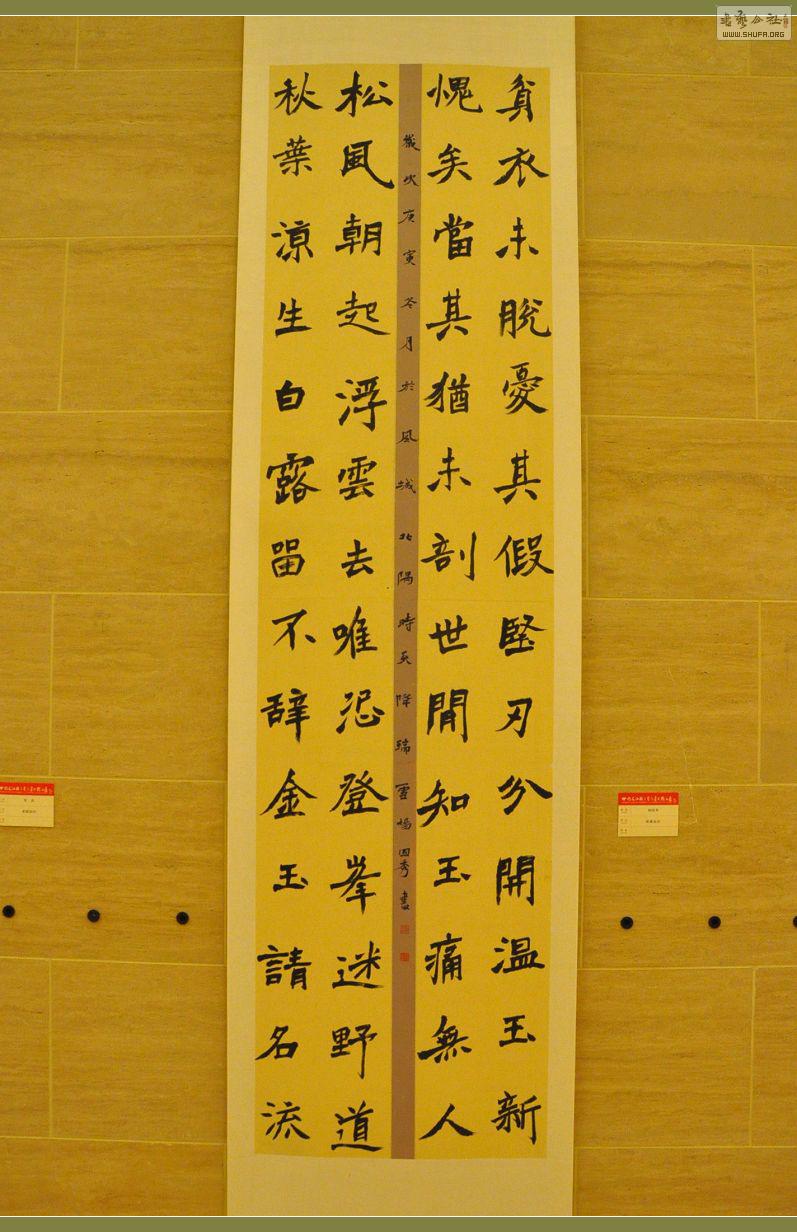 貧衣未脫憂其假堅刃分開温玉新
愧矣當其猶未剖世間知玉痛無人
歲次庚寅冬月於風城北隅時天降瑞雪
書
松風朝起浮雲去唯恐登峯迷野道
秋葉凉生白露留不辞金玉請名流
WWW.SHUFA.ORG